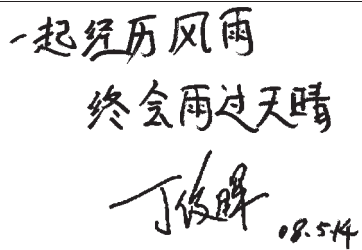 一起经历风雨
终会雨过天晴
丁俊晖
08.5.14